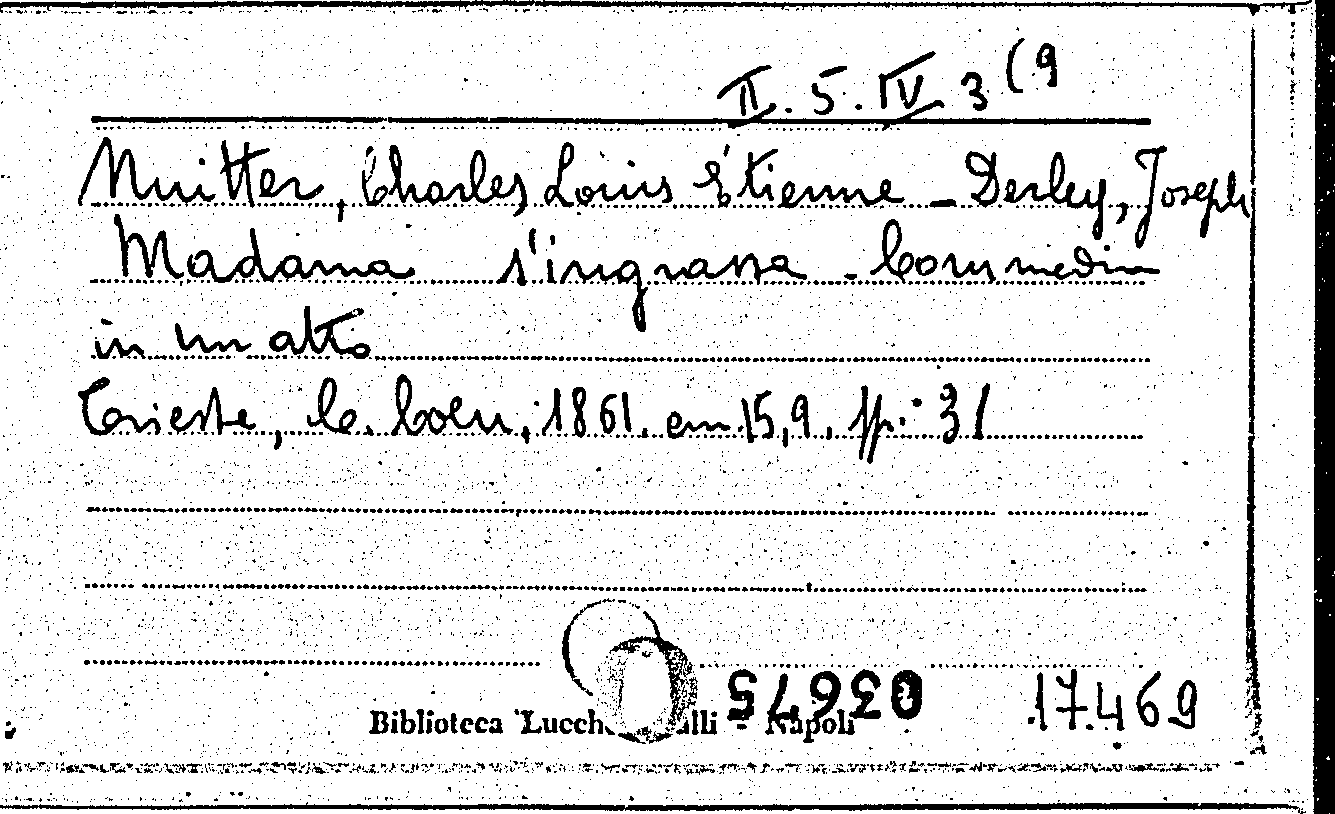 II. 5. IV. 3 (9
Nuitter, Charles Louis Étienne - Derley, Joseph
Madama s'ingrassa - Commedia
in un atto
Trieste, C. Coen, 1861. cm 15,9. pp. 31
03675
17.469
Biblioteca Lucch lli - Napoli